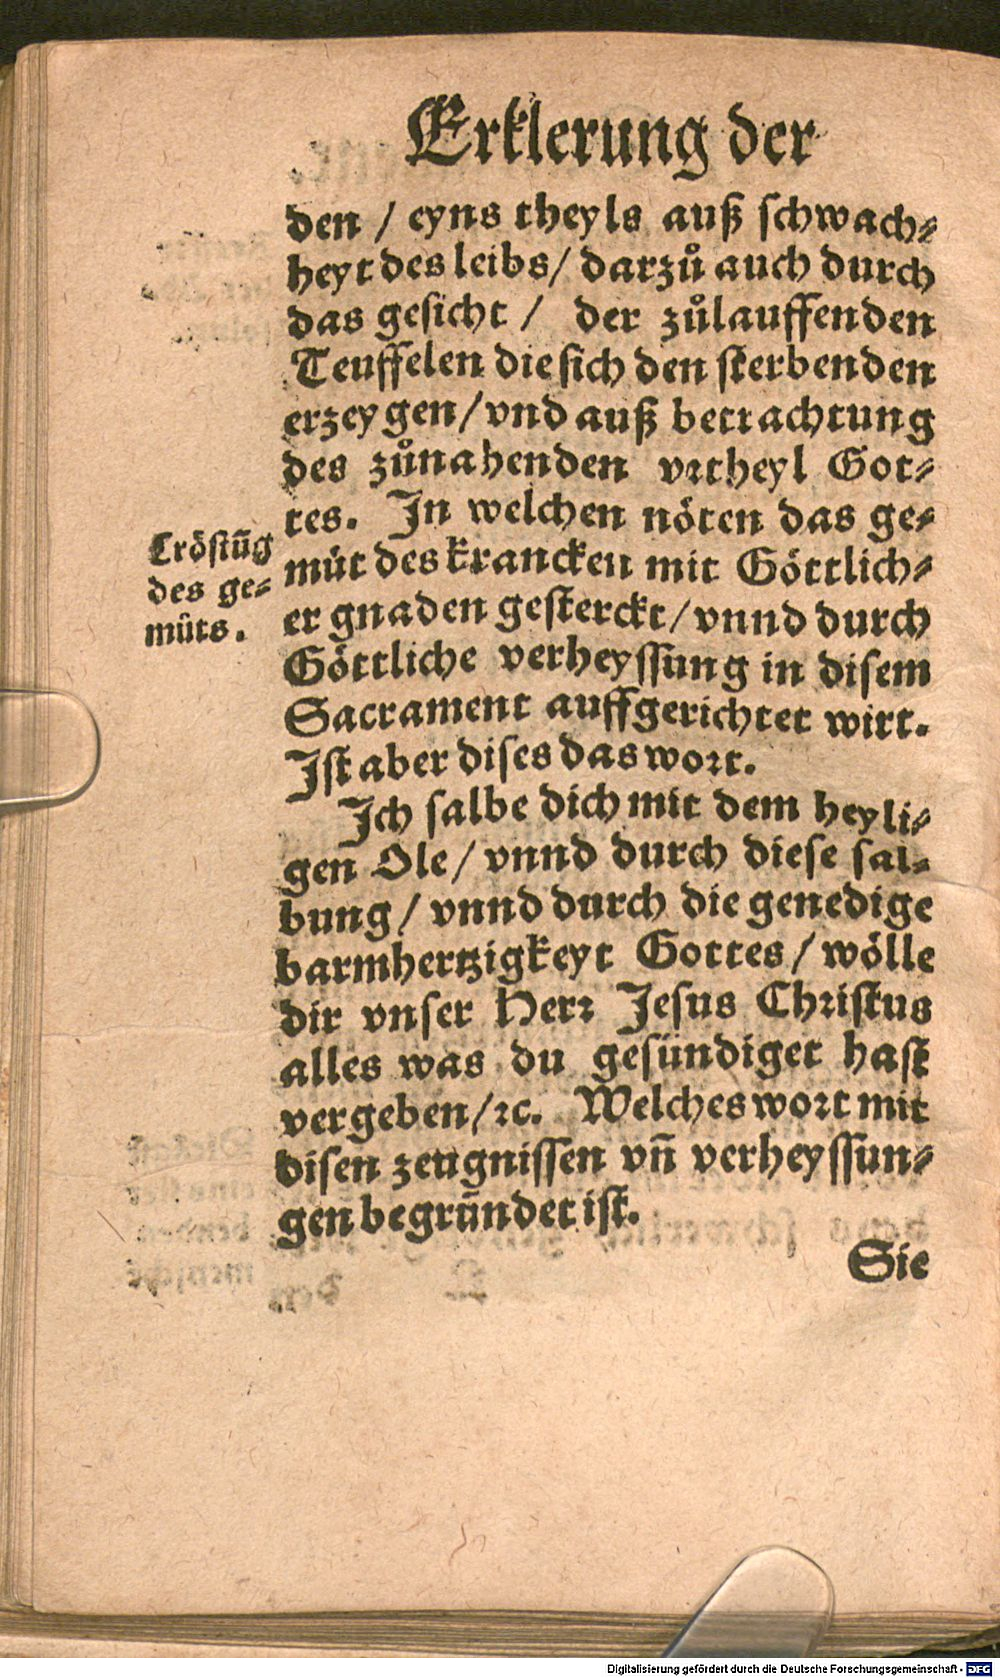 Erklerung der
den / eyns theyls auß schwach⸗
heyt des leibs / darzů auch durch
das gesicht / der zůlauffenden
Teuffelen die sich den sterbenden
erzeygen / vnd auß betrachtung
des zůnahenden vrtheyl Got⸗
tes. In welchen nöten das ge⸗
müt des krancken mit Göttlich⸗
er gnaden gesterckt / vnnd durch
Göttliche verheyssung in disem
Sacrament auffgerichtet wirt.
Ist aber dises das wort.
Tröstūg
des ge⸗
müts.
Ich salbe dich mit dem heyli⸗
gen Ole / vnnd durch diese sal⸗
bung / vnnd durch die genedige
barmhertzigkeyt Gottes / wölle
dir vnser Herr Jesus Christus
alles was du gesündiget hast
vergeben / ꝛc. Welches wort mit
disen zeugnissen vn̄ verheyssun⸗
gen begründet ist.
Sie
Digitalisierung gefördert durch die Deutsche Forschungsgemeinschaft - DFG